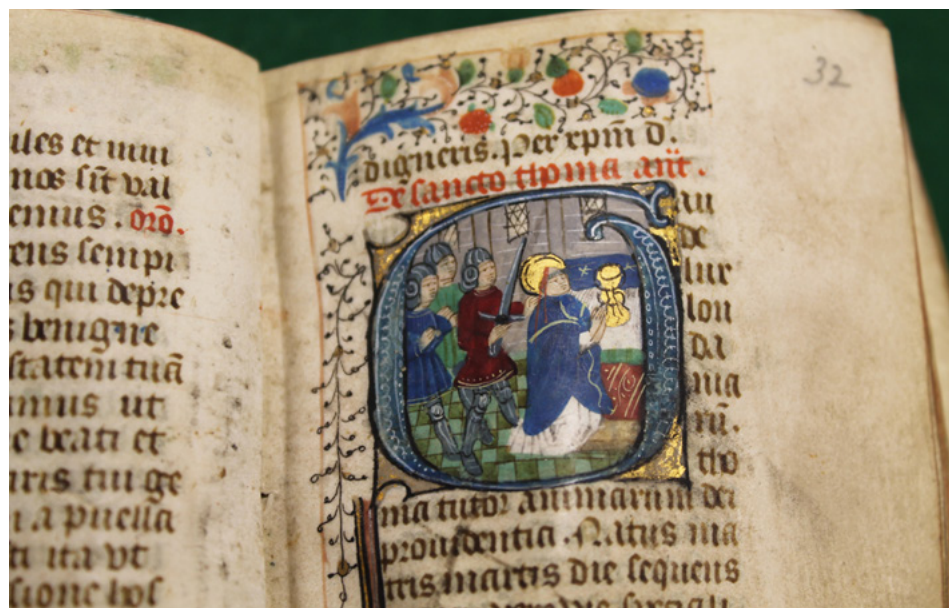 iles et mui
nos sīt val
emus . orō.
ens sempi
s qui depre
benigne
statem tuā
imus ut
e beati et
ris tui ge
a puella
ti ita vt
sione hos
32
digneris. per xpm d.
De sancto thoma ant̄.
Gau
de
lux
lon
da
nia
rū.
tho
ma tutor animarum dei
prouidentia . Natus ma
tris martis die sequens